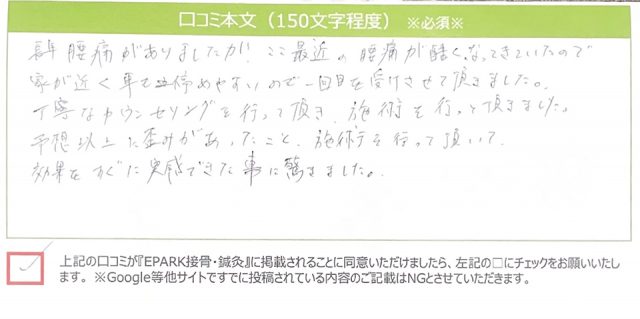 口コミ本文（150文字程度）※必須※
長年 腰痛がありましたが、ここ最近の腰痛が酷くなってきていたので
家が近く車も停めやすいので一回目を受けさせて頂きました。
丁寧なカウンセリングを行って頂き、施術を行って頂きました。
予想以上に歪みがあったこと、施術を行って頂いて、
効果をすぐに実感できた事に驚きました。
上記の口コミが『EPARK接骨・鍼灸』に掲載されることに同意いただけましたら、左記の□にチェックをお願いいたし
ます。※Google等他サイトですでに投稿されている内容のご記載はNGとさせていただきます。